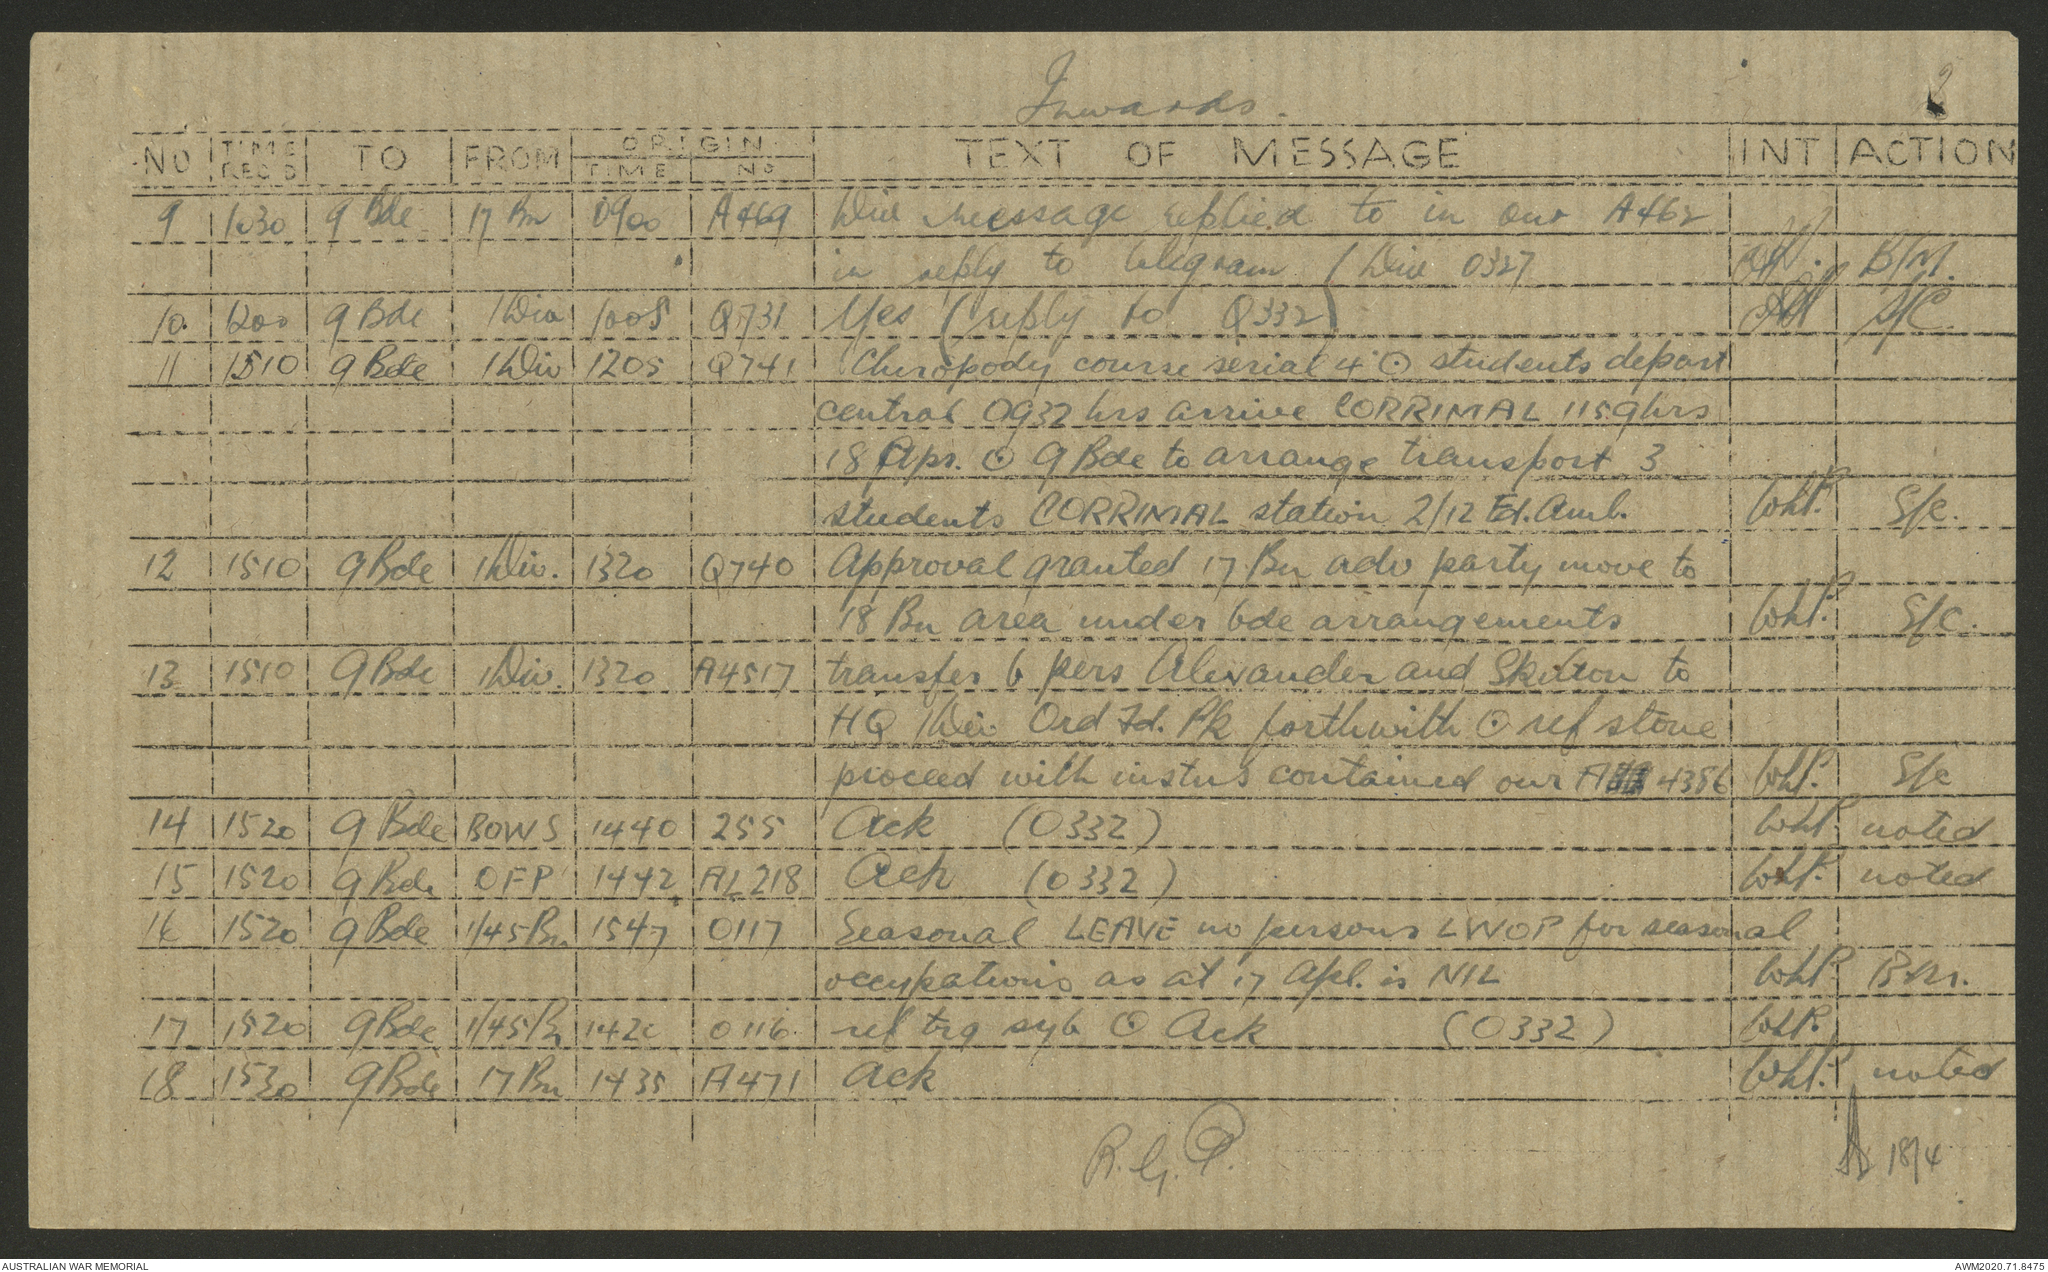 Inwards.
NO TIME REC'D TO FROM ORIGIN TIME NO TEXT OF MESSAGE INT ACTION
9 1030 9 Bde 17 Bn 0900 A469 Div message replied to in our A462
in reply to telegram (Div 0327 B/M.
10. 1200 9 Bde 1 Div 1005 Q731 Yes (reply to Q332) S/C.
11 1510 9 Bde 1 Div 1205 Q741 Chiropody course serial 4 ⊙ students depart
central 0932 hrs arrive CORRIMAL 1159 hrs
18 Apr. ⊙ 9 Bde to arrange transport 3
students CORRIMAL station 2/12 Fd. Amb. WhP. S/c.
12 1510 9 Bde 1 Div. 1320 Q740 Approval granted 17 Bn adv party move to
18 Bn area under bde arrangements WhP. S/c.
13 1510 9 Bde 1 Div. 1320 A4517 transfer 6 pers Alexander and Skilton to
HQ 1 Div Ord Fd. Pk forthwith ⊙ ref stone
proceed with instns contained our A 4386 WhP. S/c
14 1520 9 Bde BOWS 1440 255 Ack (0332) WhP. noted
15 1520 9 Bde OFP 1442 AL218 Ack (0332) WhP. noted
16 1520 9 Bde 1/45 Bn 1547 0117 Seasonal LEAVE no persons LWOP for seasonal
occupations as at 17 Apl. is NIL WhP. B.M.
17 1520 9 Bde 1/45 Bn 1420 0116 ref trg syb ⊙ Ack (0332) WhP.
18 1530 9 Bde 17 Bn 1435 A471 Ack WhP. noted
R.G.P.
18/4
AUSTRALIAN WAR MEMORIAL AWM2020.71.8475